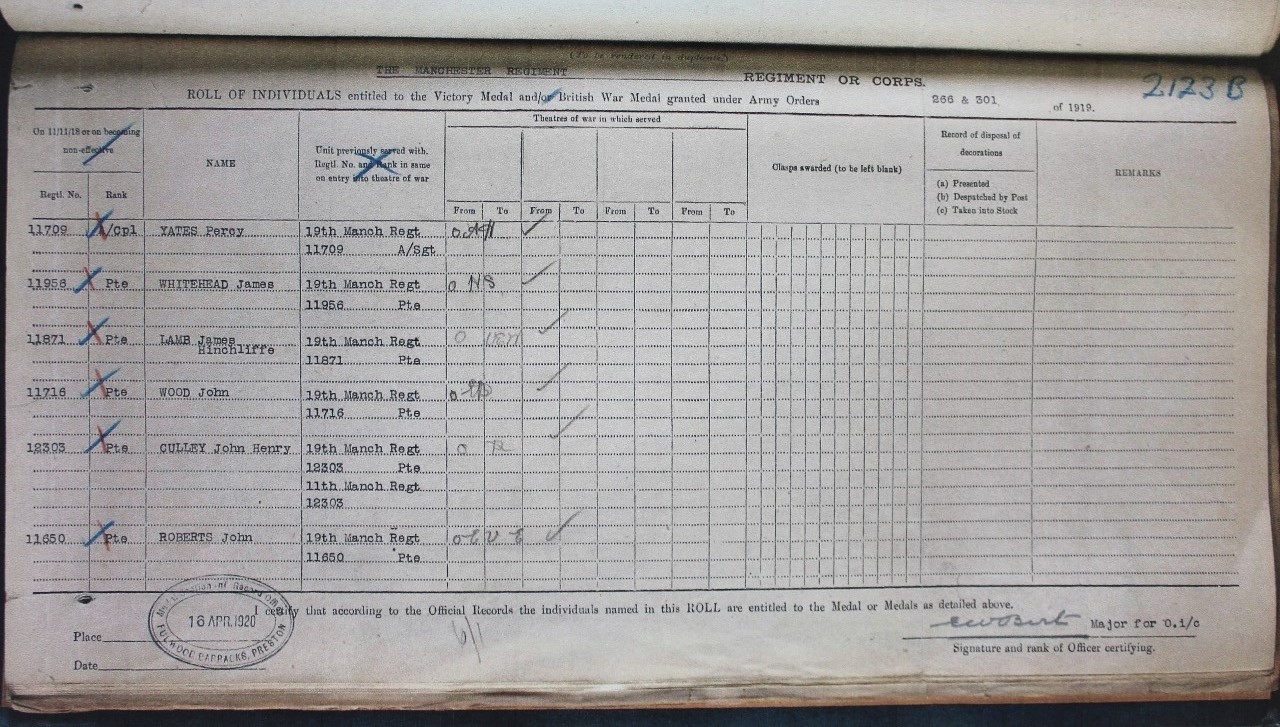 (To be rendered in duplicate.)
THE MANCHESTER REGIMENT REGIMENT OR CORPS.
2123 B
ROLL OF INDIVIDUALS entitled to the Victory Medal and/or British War Medal granted under Army Orders 266 & 301 of 1919.
On 11/11/18 or on becoming non-effective
Regtl. No. Rank
NAME
Unit previously served with. Regtl. No. and Rank in same on entry into theatre of war
Theatres of war in which served
From To From To From To From To
Clasps awarded (to be left blank)
Record of disposal of decorations
(a) Presented
(b) Despatched by Post
(c) Taken into Stock
REMARKS
11709 A/Cpl YATES Percy 19th Manch Regt
11709 A/Sgt
11956 Pte WHITEHEAD James 19th Manch Regt
11956 Pte
11871 Pte LAMB James Hinchliffe 19th Manch Regt
11871 Pte
11716 Pte WOOD John 19th Manch Regt
11716 Pte
12303 Pte CULLEY John Henry 19th Manch Regt
12303 Pte
11th Manch Regt
12303
11650 Pte ROBERTS John 19th Manch Regt
11650 Pte
I certify that according to the Official Records the individuals named in this ROLL are entitled to the Medal or Medals as detailed above.
16 APR. 1920
FULWOOD BARRACKS, PRESTON
Place
Date
Major for O.i/c
Signature and rank of Officer certifying.